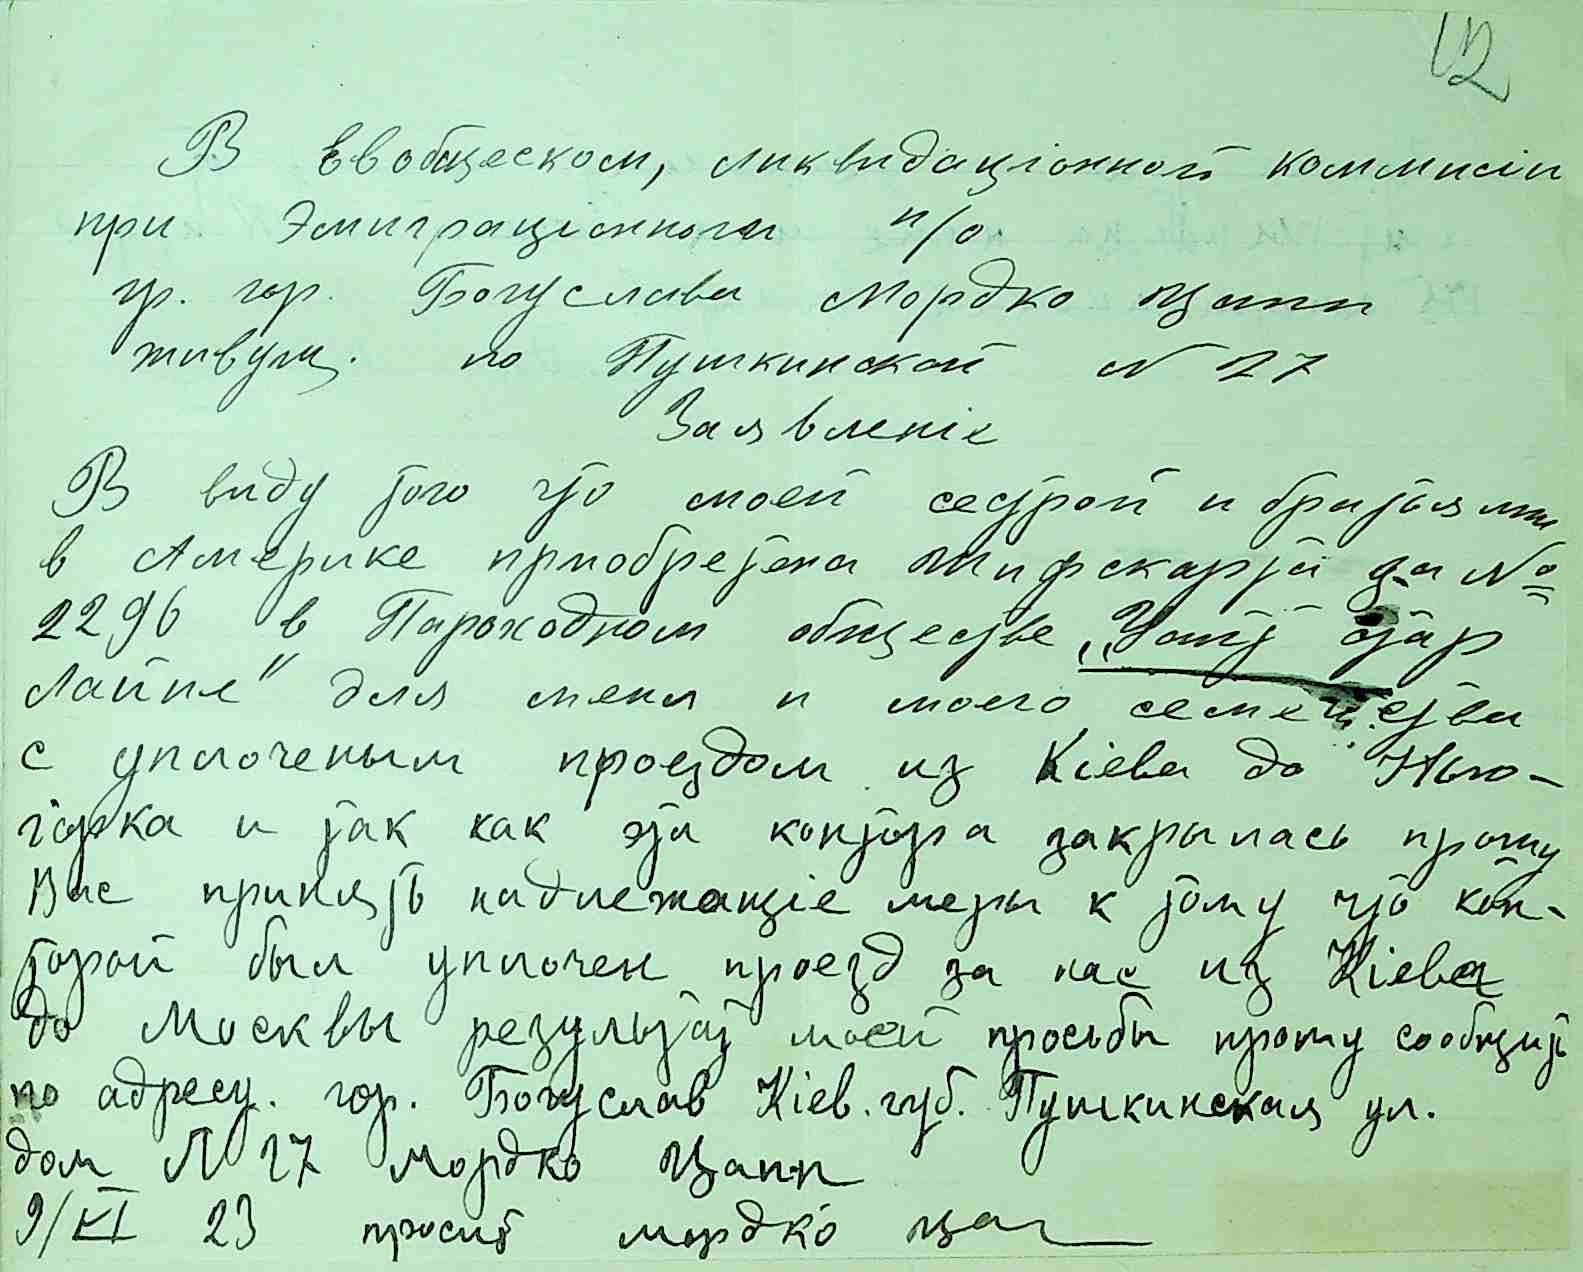 12
В Евобщеском, ликвидаціонной коммисіи
при Эмиграціонном п/о
гр. гор. Богуслава Мордко Цапп
живущ. по Пушкинской N 27
Заявленіе
В виду того что моей сестрой и братьями
в Америке приобретена Шифскарта за №
2296 в Пароходном обществе „Уайт Стар
Лайне" для меня и моего семейства
с уплоченым проездом из Кіева до Нью-
Іорка и так как эта контора закрылась прошу
Вас принять надлежащіе меры к тому что кон-
торой был уплочен проезд за нас из Кіева
до Москвы результат моей просьбы прошу сообщить
по адресу. гор. Богуслав Кіев. губ. Пушкинская ул.
дом N 27 Мордко Цапп
9/XI 23 просит Мордко